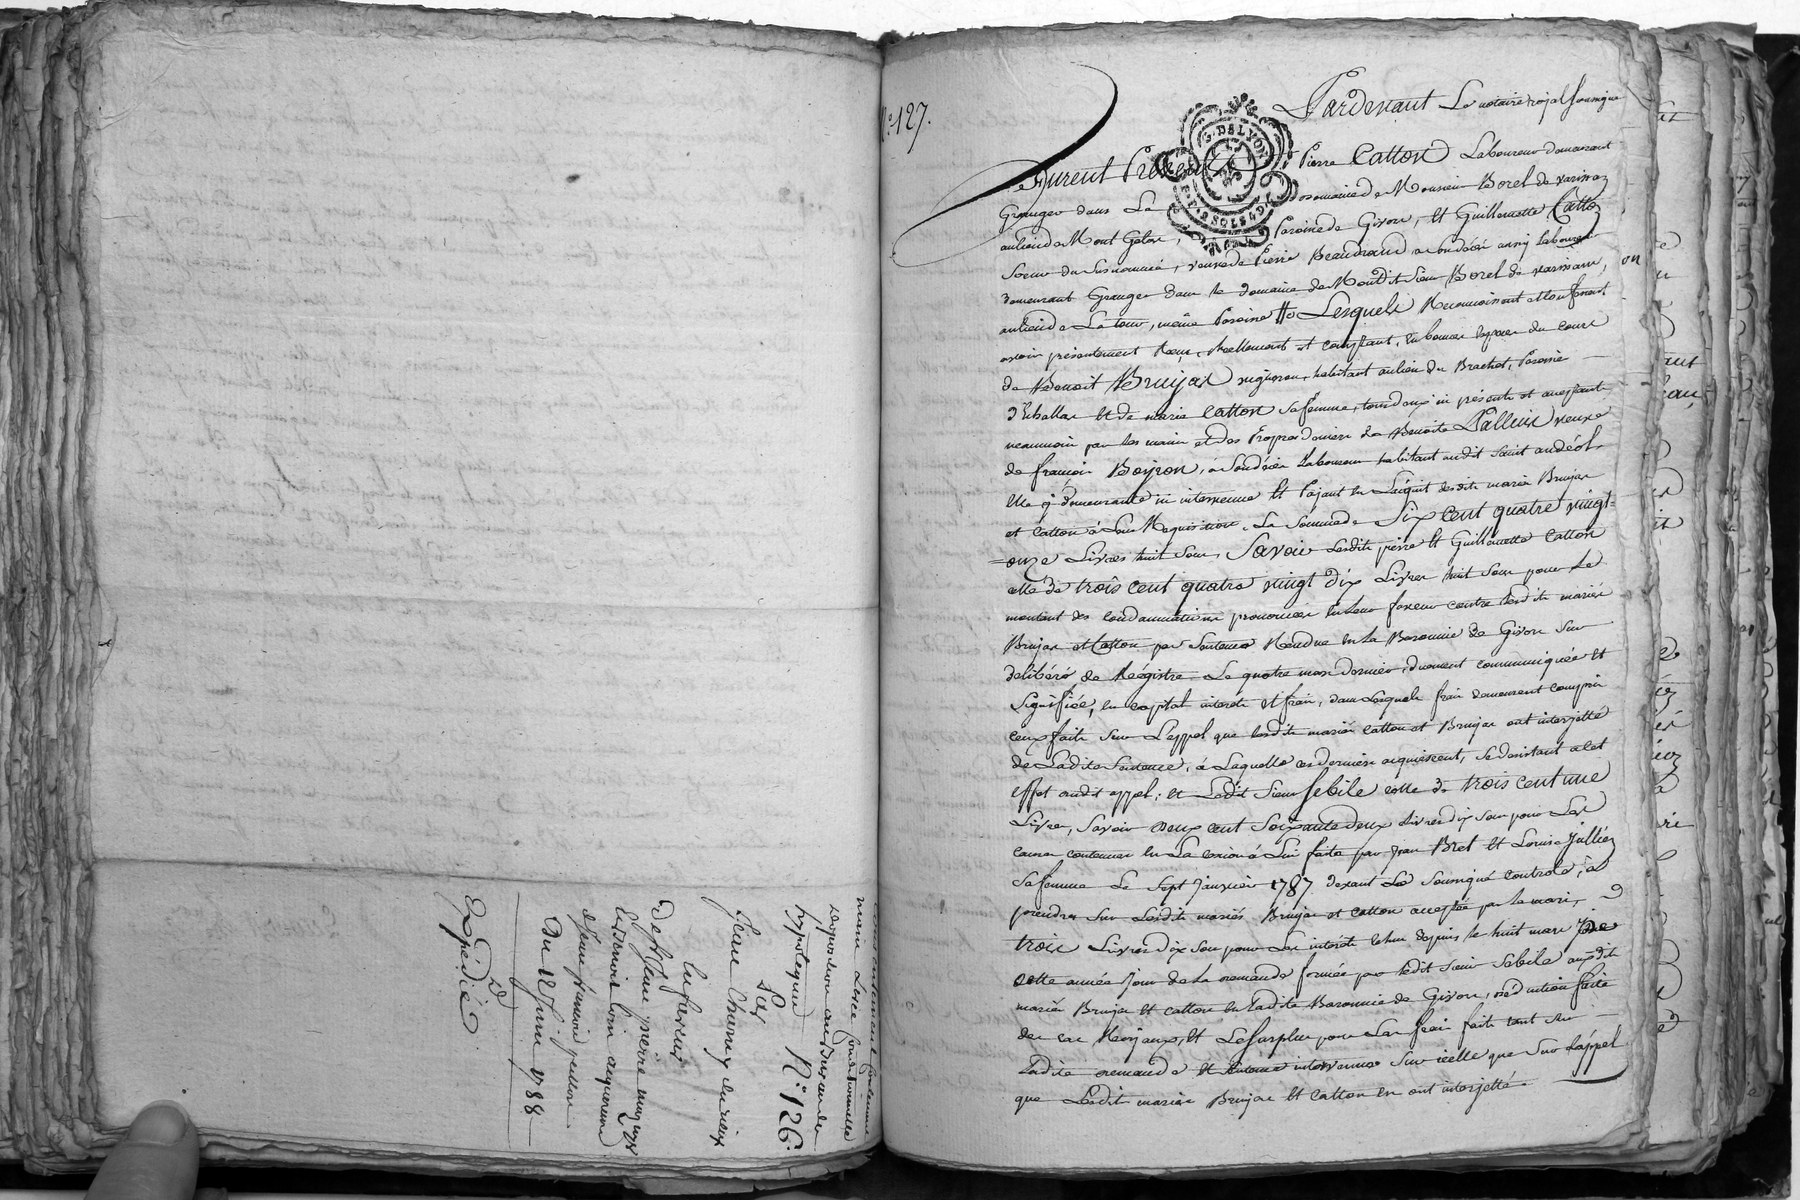 consentement contenue
meme Lexée conditionnelle
Déposition au Bureau des
hypoteques N.º 126.
Par
Jean Charvey du vieux
en faveur
De Sr. Jean pierre
les benoit leurs acquereurs
d'jean francois pellon
Du 12 Juin 1788
D
Expédié.
N.º 127.
Pardevant Le notaire royal soussigné
G. DE LYON
Furent Présents Pierre Catton Laboureur demeurant
Granger dans Le domaine de Monsieur Borel de varissan
au lieu de Mont Gelas, Paroisse de Givors, Et Guillemette Catton
Soeur du Susnommé, veuve de Pierre Beaudrand a son décès aussi Laboureur
demeurant Granger dans le domaine de Mondit Sieur Borel de varissan,
au lieu de La tour, même Paroisse // Lesquels Reconnoissent et Confessent
avoir présentement Reçu, Réellement et comptant, en bonnes espèces du cours
de Benoit Bruyas vigneron, habitant au lieu du Brachet, Paroisse
d'Echallas Et de marie Catton sa femme, tous deux ici présents et acceptant
neanmoins par les mains et des Propres deniers de Benoite Pallluis veuve
de françois Boyron, à Son décès Laboureur habitant audit Saint andéol
Elle y demeurante ici intervenue Et Payant En L'acquit desdits mariés Bruyas
et Catton à Leur Requisition, La Somme de Six cent quatre vingt=
=onze Livres huit Sous, Savoir Lesdits pierre Et Guillemette Catton
celle de trois cent quatre vingt dix Livres huit Sous pour Le
montant des Condamnations prononcées En Leur faveur contre Lesdits mariés
Bruyas et Catton par Sentence Rendue En La Baronnie de Givors Sur
délibéré de Régistre Le quatre mars dernier, duement communiquée Et
Signifiée, En capital interets Et frais, dans Lesquels frais demeurent compris
ceux faits Sur L'appel que Lesdits mariés Catton et Bruyas ont interjetté
de Ladite Sentence, à Laquelle ces derniers acquiescent, Se désistant a cet
Effet audit appel; Et Ledit Sieur Sebile celle de trois cent une
Livres, Savoir Deux cent Soixante deux Livres dix Sous pour Les
causes contenues En La cession à Lui faite par Jean Bret Et Louise Jullien
Sa femme Le Sept Janvier 1787 devant Le Soussigné controlé, à
prendre Sur Lesdits mariés Bruyas et Catton acceptée par Le mari,
trois Livres dix Sous pour Les intérêts Echus depuis le huit mars
cette année Jour de La demande formée par Ledit Sieur Sebile auxdits
mariés Bruyas Et Catton En Ladite Baronnie de Givors, déduction faite
des cas Royaux, Et Le Surplus pour Les frais faits tant Sur
Ladite demande Et Sentence intervenue Sur icelle que Sur L'appel
que Lesdits mariés Bruyas Et Catton En ont interjetté